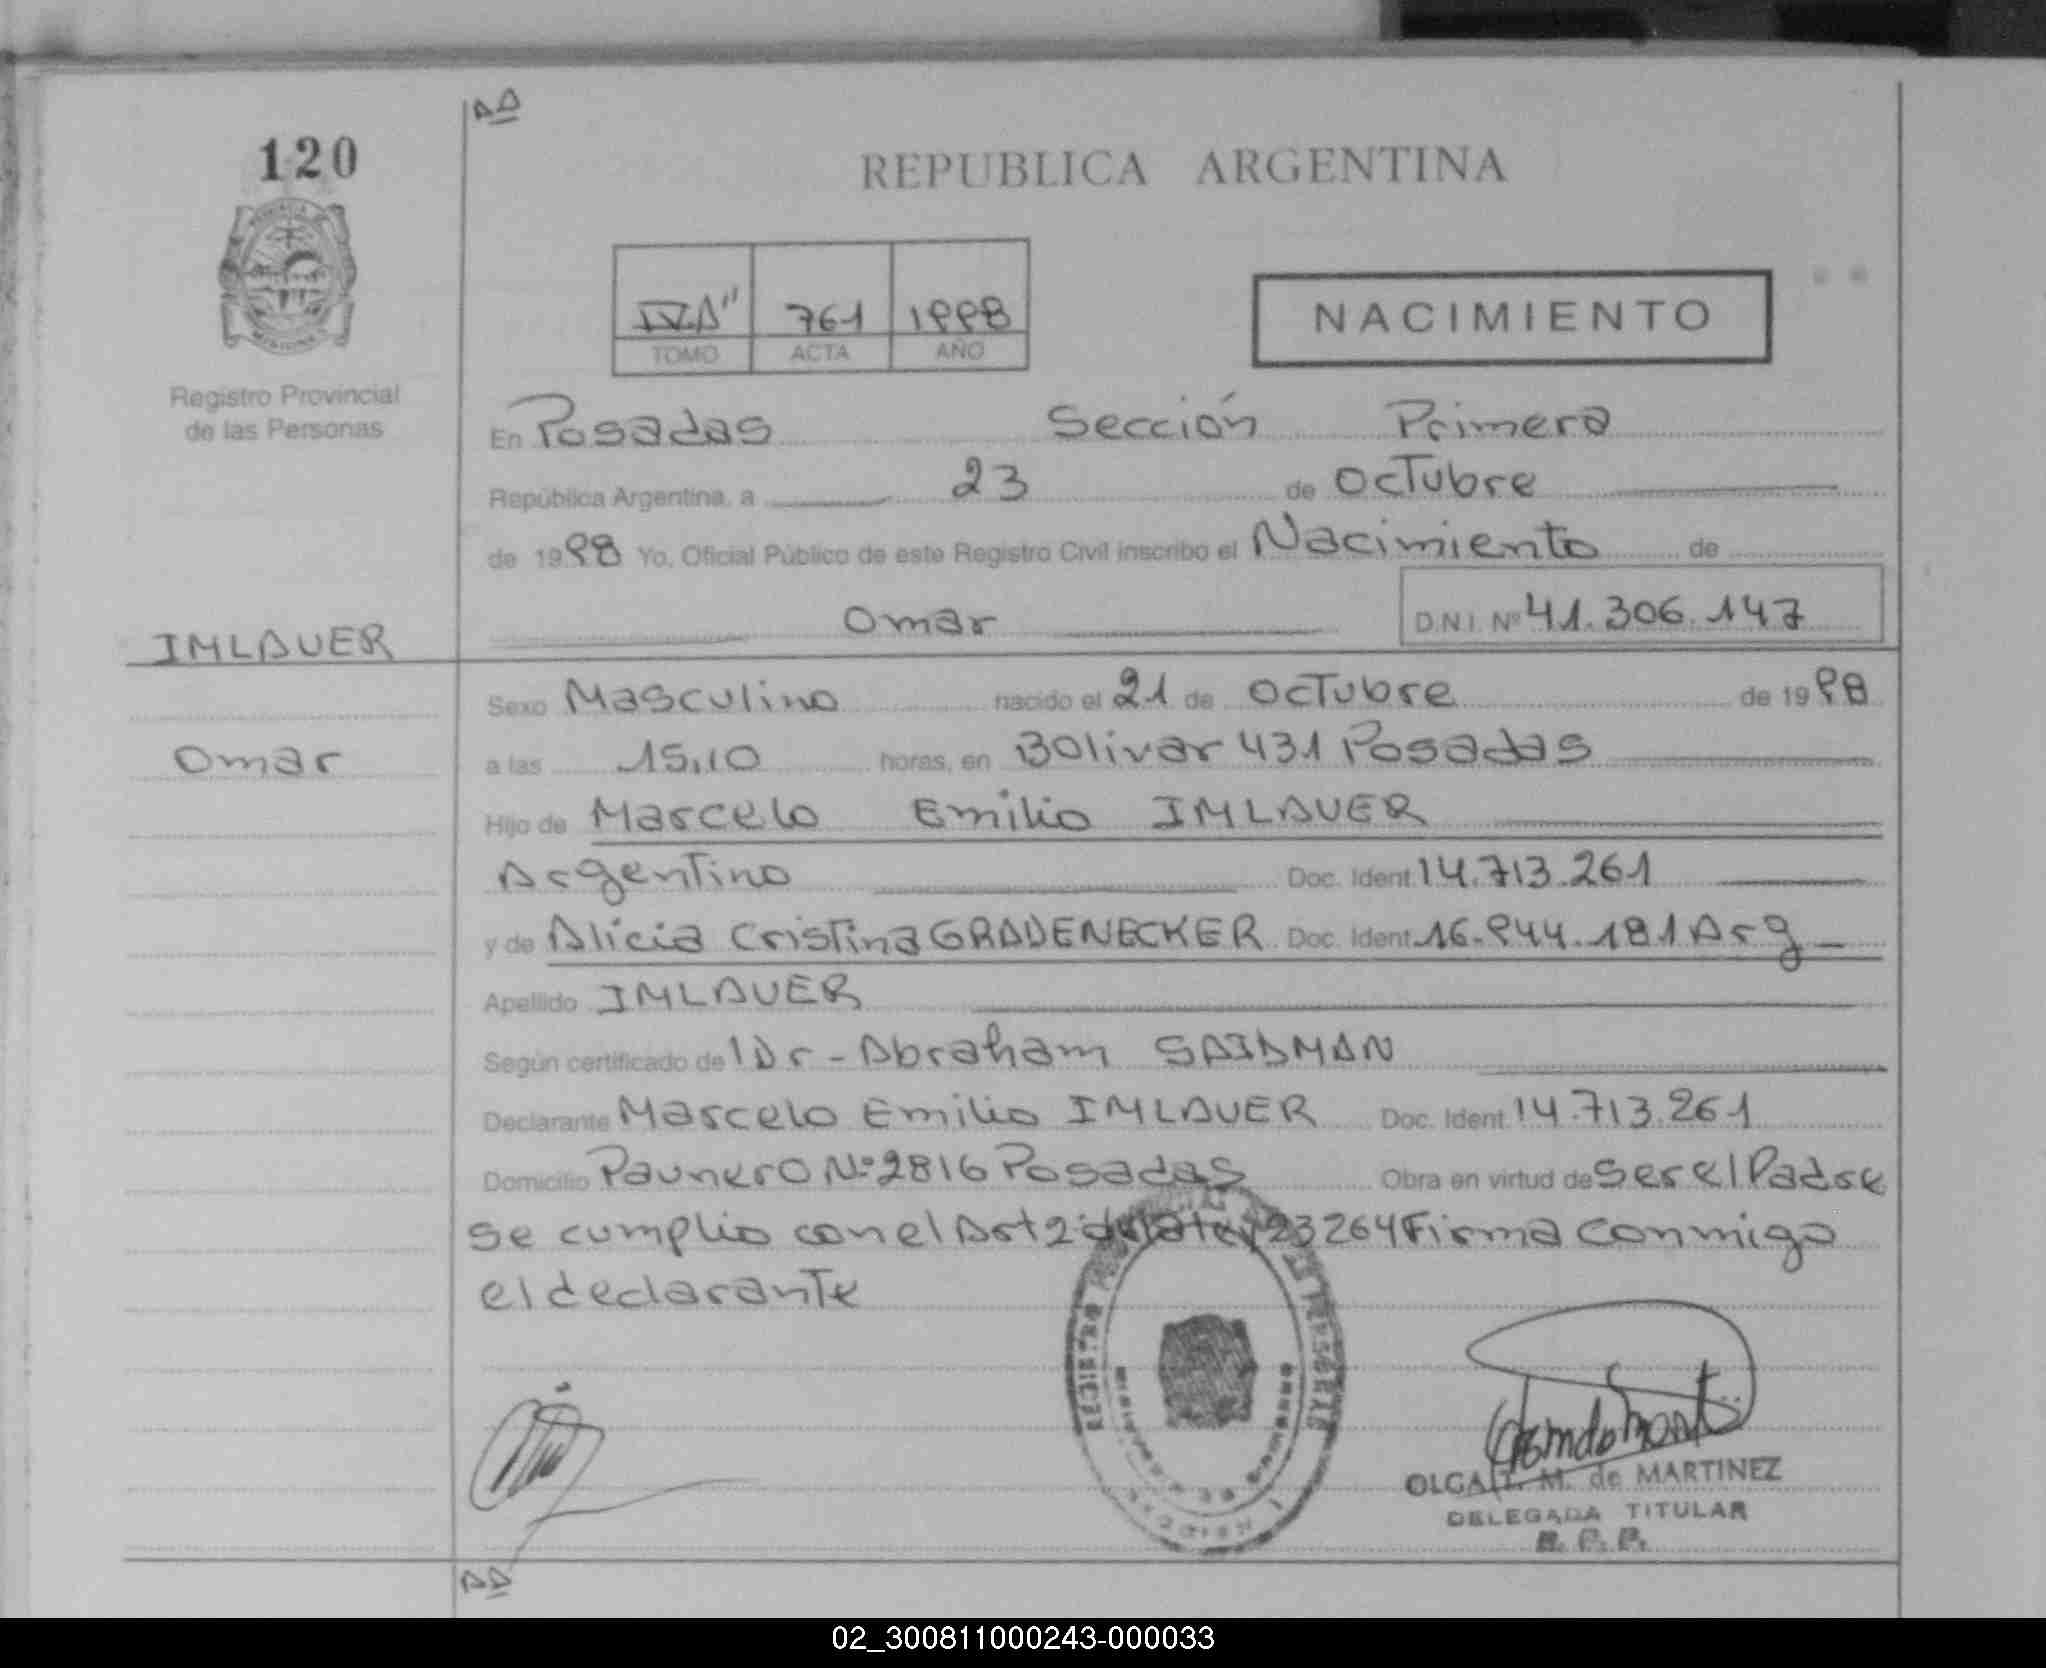 120
REPUBLICA ARGENTINA
IV"A" 761 1998
TOMO ACTA AÑO
NACIMIENTO
Registro Provincial
de las Personas
En Posadas Sección Primera
República Argentina, a 23 de Octubre
de 1998 Yo, Oficial Público de este Registro Civil inscribo el Nacimiento de
Omar D.N.I. Nº 41.306.147
IMLAUER
Omar
Sexo Masculino nacido el 21 de Octubre de 1998
a las 15,10 horas, en Bolivar 431 Posadas
Hijo de Marcelo Emilio IMLAUER
Argentino Doc. Ident. 14.713.261
y de Alicia Cristina GRADENECKER Doc. Ident. 16.944.181 Arg
Apellido IMLAUER
Según certificado de l Dr - Abraham SAIDMAN
Declarante Marcelo Emilio IMLAUER Doc. Ident. 14.713.261
Domicilio Paunero Nº 2816 Posadas Obra en virtud de Ser el Padre
Se cumplio con el Art 2 de la ley 23264 Firma conmigo
el declarante
REGISTRO PERSONAS
OLGA T. M. de MARTINEZ
DELEGADA TITULAR
R. P. P.
02_300811000243-000033